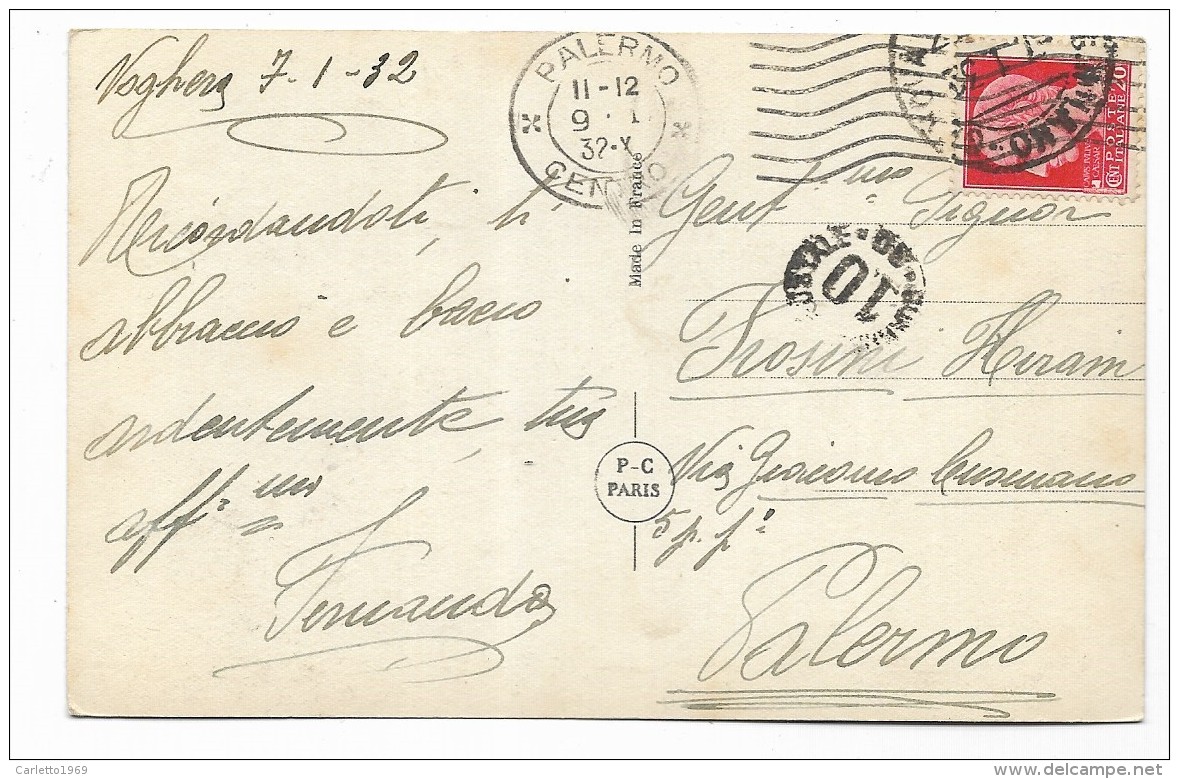 Voghera 7-1-32
Ricordandoti, ti
abbraccio e bacio
ardentemente, tuo
aff.mo
Fernando
PALERMO
11-12
9 · I
32·X
CENTRO
Made In France
P-C
PARIS
Gent.mo Signor
Frosini Hiram
Via Giacomo Cusmano
5 p. p.o
Palermo
10
MILANO
POSTE
ITALIANE
CENT 20
CAESAR
Carletto1969
www.delcampe.net